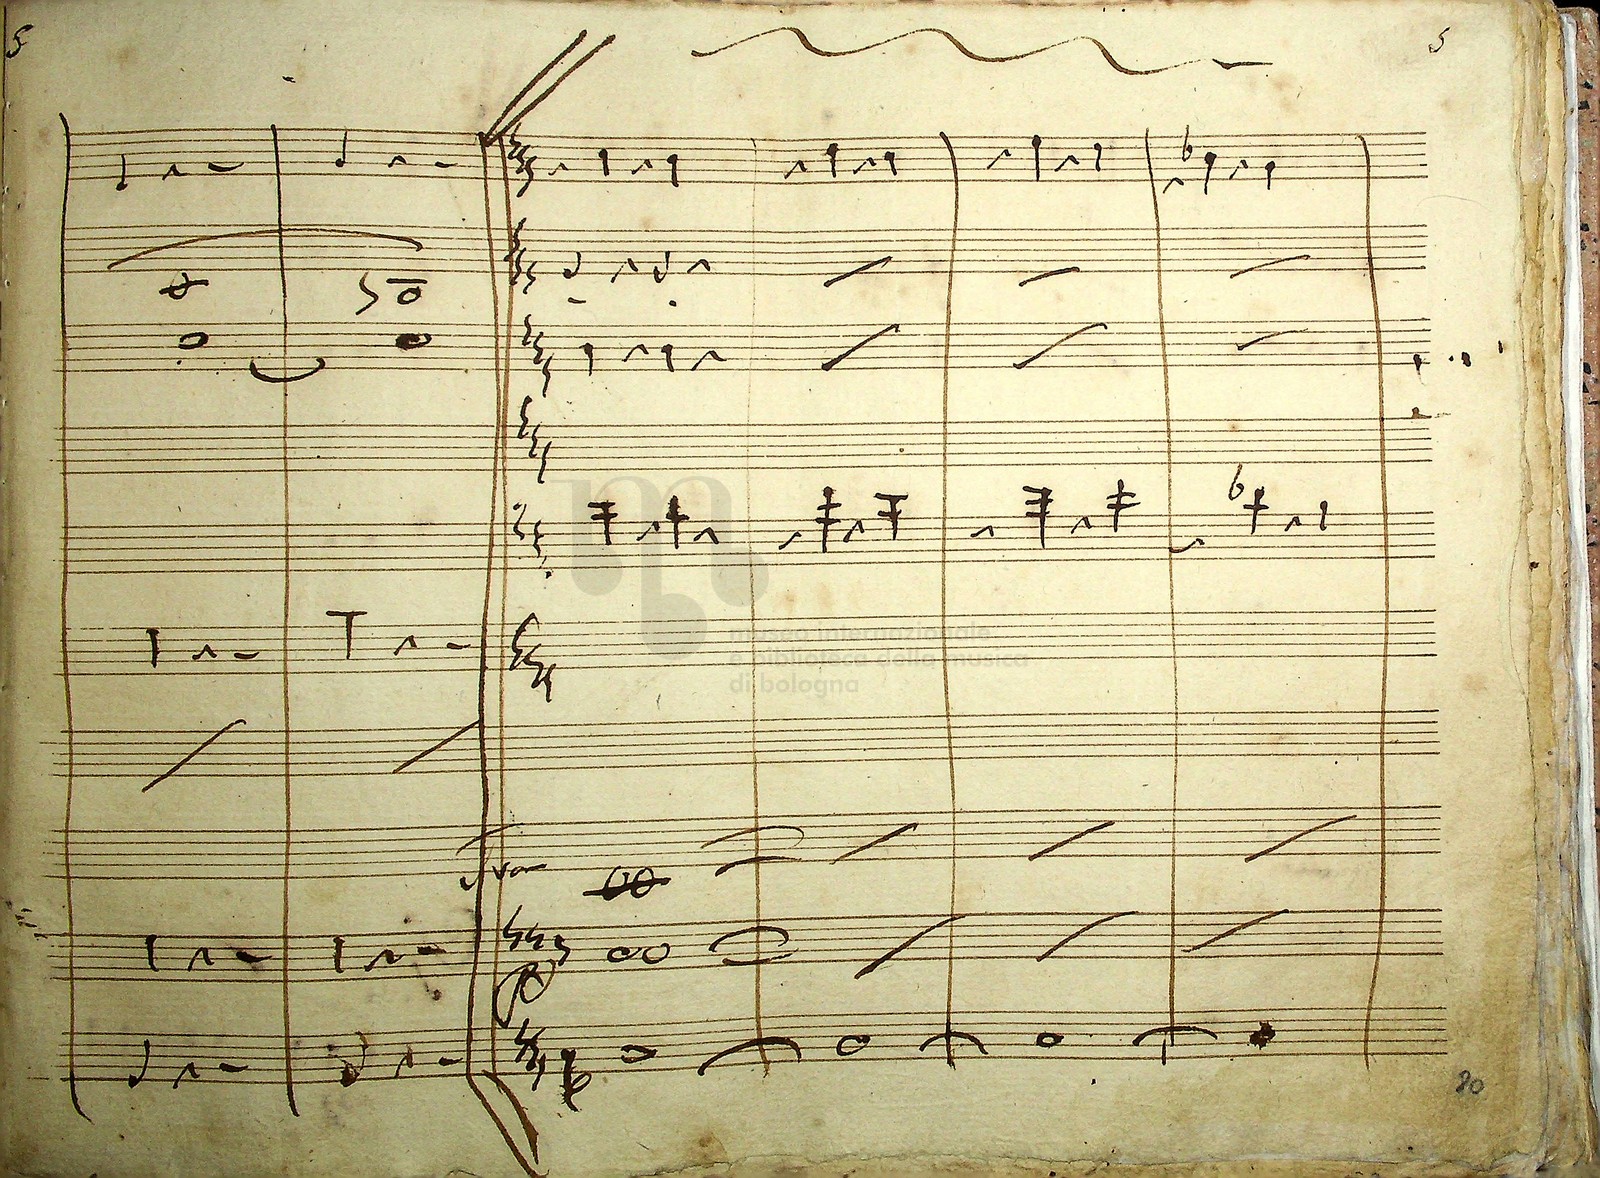 5
5
museo internazionale
e biblioteca della musica
di bologna
8va
20